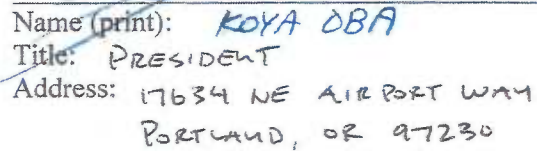 Name (print): KOYA OBA
Title: PRESIDENT
Address: 17634 NE AIRPORT WAY
PORTLAND, OR 97230